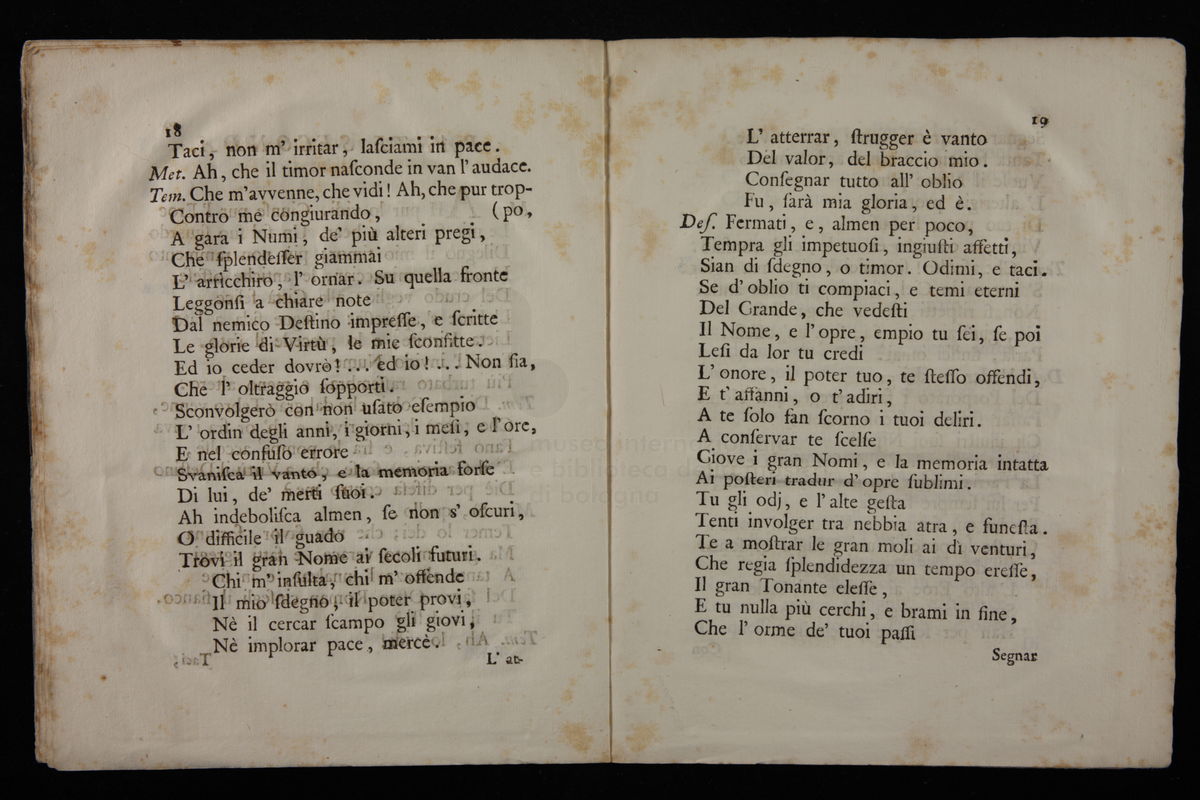 18
Taci, non m' irritar, laſciami in pace.
Met. Ah, che il timor naſconde in van l'audace.
Tem. Che m'avvenne, che vidi! Ah, che pur trop-
Contro me congiurando, (po,
A gara i Numi, de' più alteri pregi,
Che ſplendeſſer giammai
L' arricchiro, l' ornar. Su quella fronte
Leggonſi a chiare note
Dal nemico Deſtino impreſſe, e ſcritte
Le glorie di Virtù, le mie ſconfitte.
Ed io ceder dovrò!... ed io!... Non ſia,
Che l' oltraggio ſopporti.
Sconvolgerò con non uſato eſempio
L' ordin degli anni, i giorni, i meſi, e l'ore,
E nel confuſo errore
Svaniſca il vanto, e la memoria forſe
Di lui, de' merti ſuoi.
Ah indeboliſca almen, ſe non s' oſcuri,
O difficile il guado
Trovi il gran Nome ai ſecoli futuri.
Chi m' inſulta, chi m' offende
Il mio ſdegno, il poter provi,
Nè il cercar ſcampo gli giovi,
Nè implorar pace, mercè.
L' at-
19
L' atterrar, ſtrugger è vanto
Del valor, del braccio mio.
Conſegnar tutto all' oblio
Fu, ſarà mia gloria, ed è.
Deſ. Fermati, e, almen per poco,
Tempra gli impetuoſi, ingiuſti affetti,
Sian di ſdegno, o timor. Odimi, e taci.
Se d' oblio ti compiaci, e temi eterni
Del Grande, che vedeſti
Il Nome, e l' opre, empio tu ſei, ſe poi
Leſi da lor tu credi
L' onore, il poter tuo, te ſteſſo offendi,
E t' affanni, o t' adiri,
A te ſolo fan ſcorno i tuoi deliri.
A conſervar te ſcelſe
Giove i gran Nomi, e la memoria intatta
Ai poſteri tradur d' opre ſublimi.
Tu gli odj, e l' alte geſta
Tenti involger tra nebbia atra, e funeſta.
Te a moſtrar le gran moli ai dì venturi,
Che regia ſplendidezza un tempo ereſſe,
Il gran Tonante eleſſe,
E tu nulla più cerchi, e brami in fine,
Che l' orme de' tuoi paſſi
Segnar
museo intern
e biblioteca de
di bologna